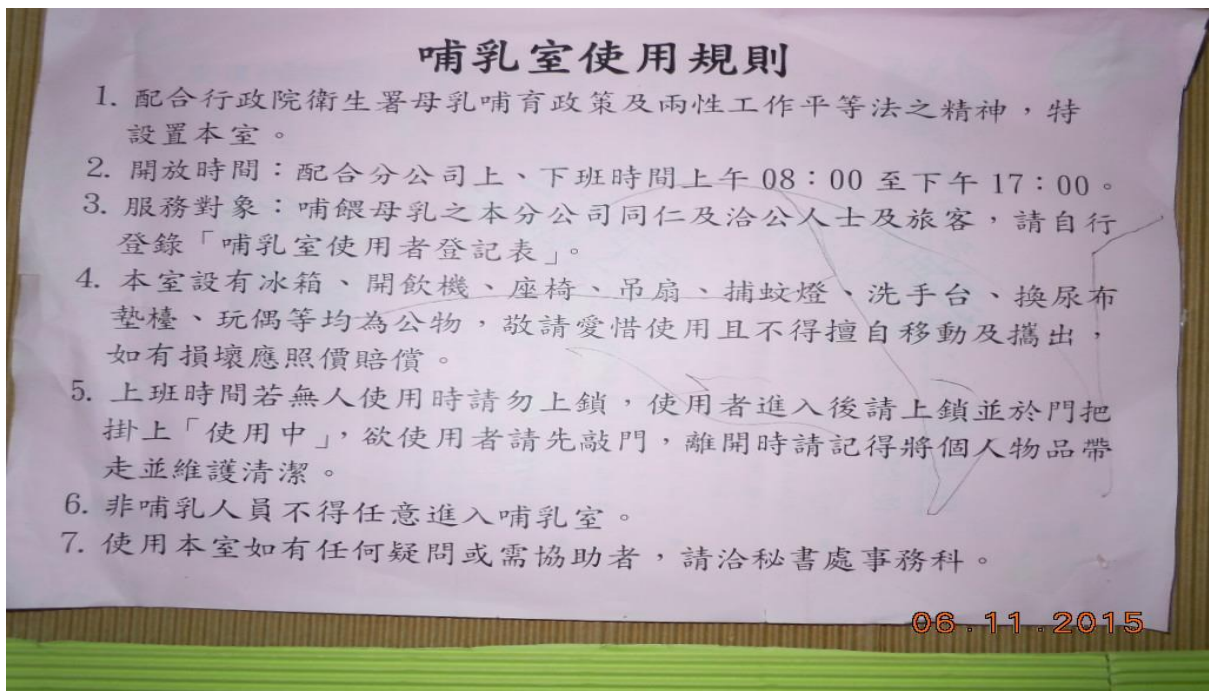 哺乳室使用規則
1. 配合行政院衛生署母乳哺育政策及兩性工作平等法之精神，特
設置本室。
2. 開放時間：配合分公司上、下班時間上午 08：00 至下午 17：00。
3. 服務對象：哺餵母乳之本分公司同仁及洽公人士及旅客，請自行
登錄「哺乳室使用者登記表」。
4. 本室設有冰箱、開飲機、座椅、吊扇、捕蚊燈、洗手台、換尿布
墊檯、玩偶等均為公物，敬請愛惜使用且不得擅自移動及攜出，
如有損壞應照價賠償。
5. 上班時間若無人使用時請勿上鎖，使用者進入後請上鎖並於門把
掛上「使用中」，欲使用者請先敲門，離開時請記得將個人物品帶
走並維護清潔。
6. 非哺乳人員不得任意進入哺乳室。
7. 使用本室如有任何疑問或需協助者，請洽秘書處事務科。
06.11.2015